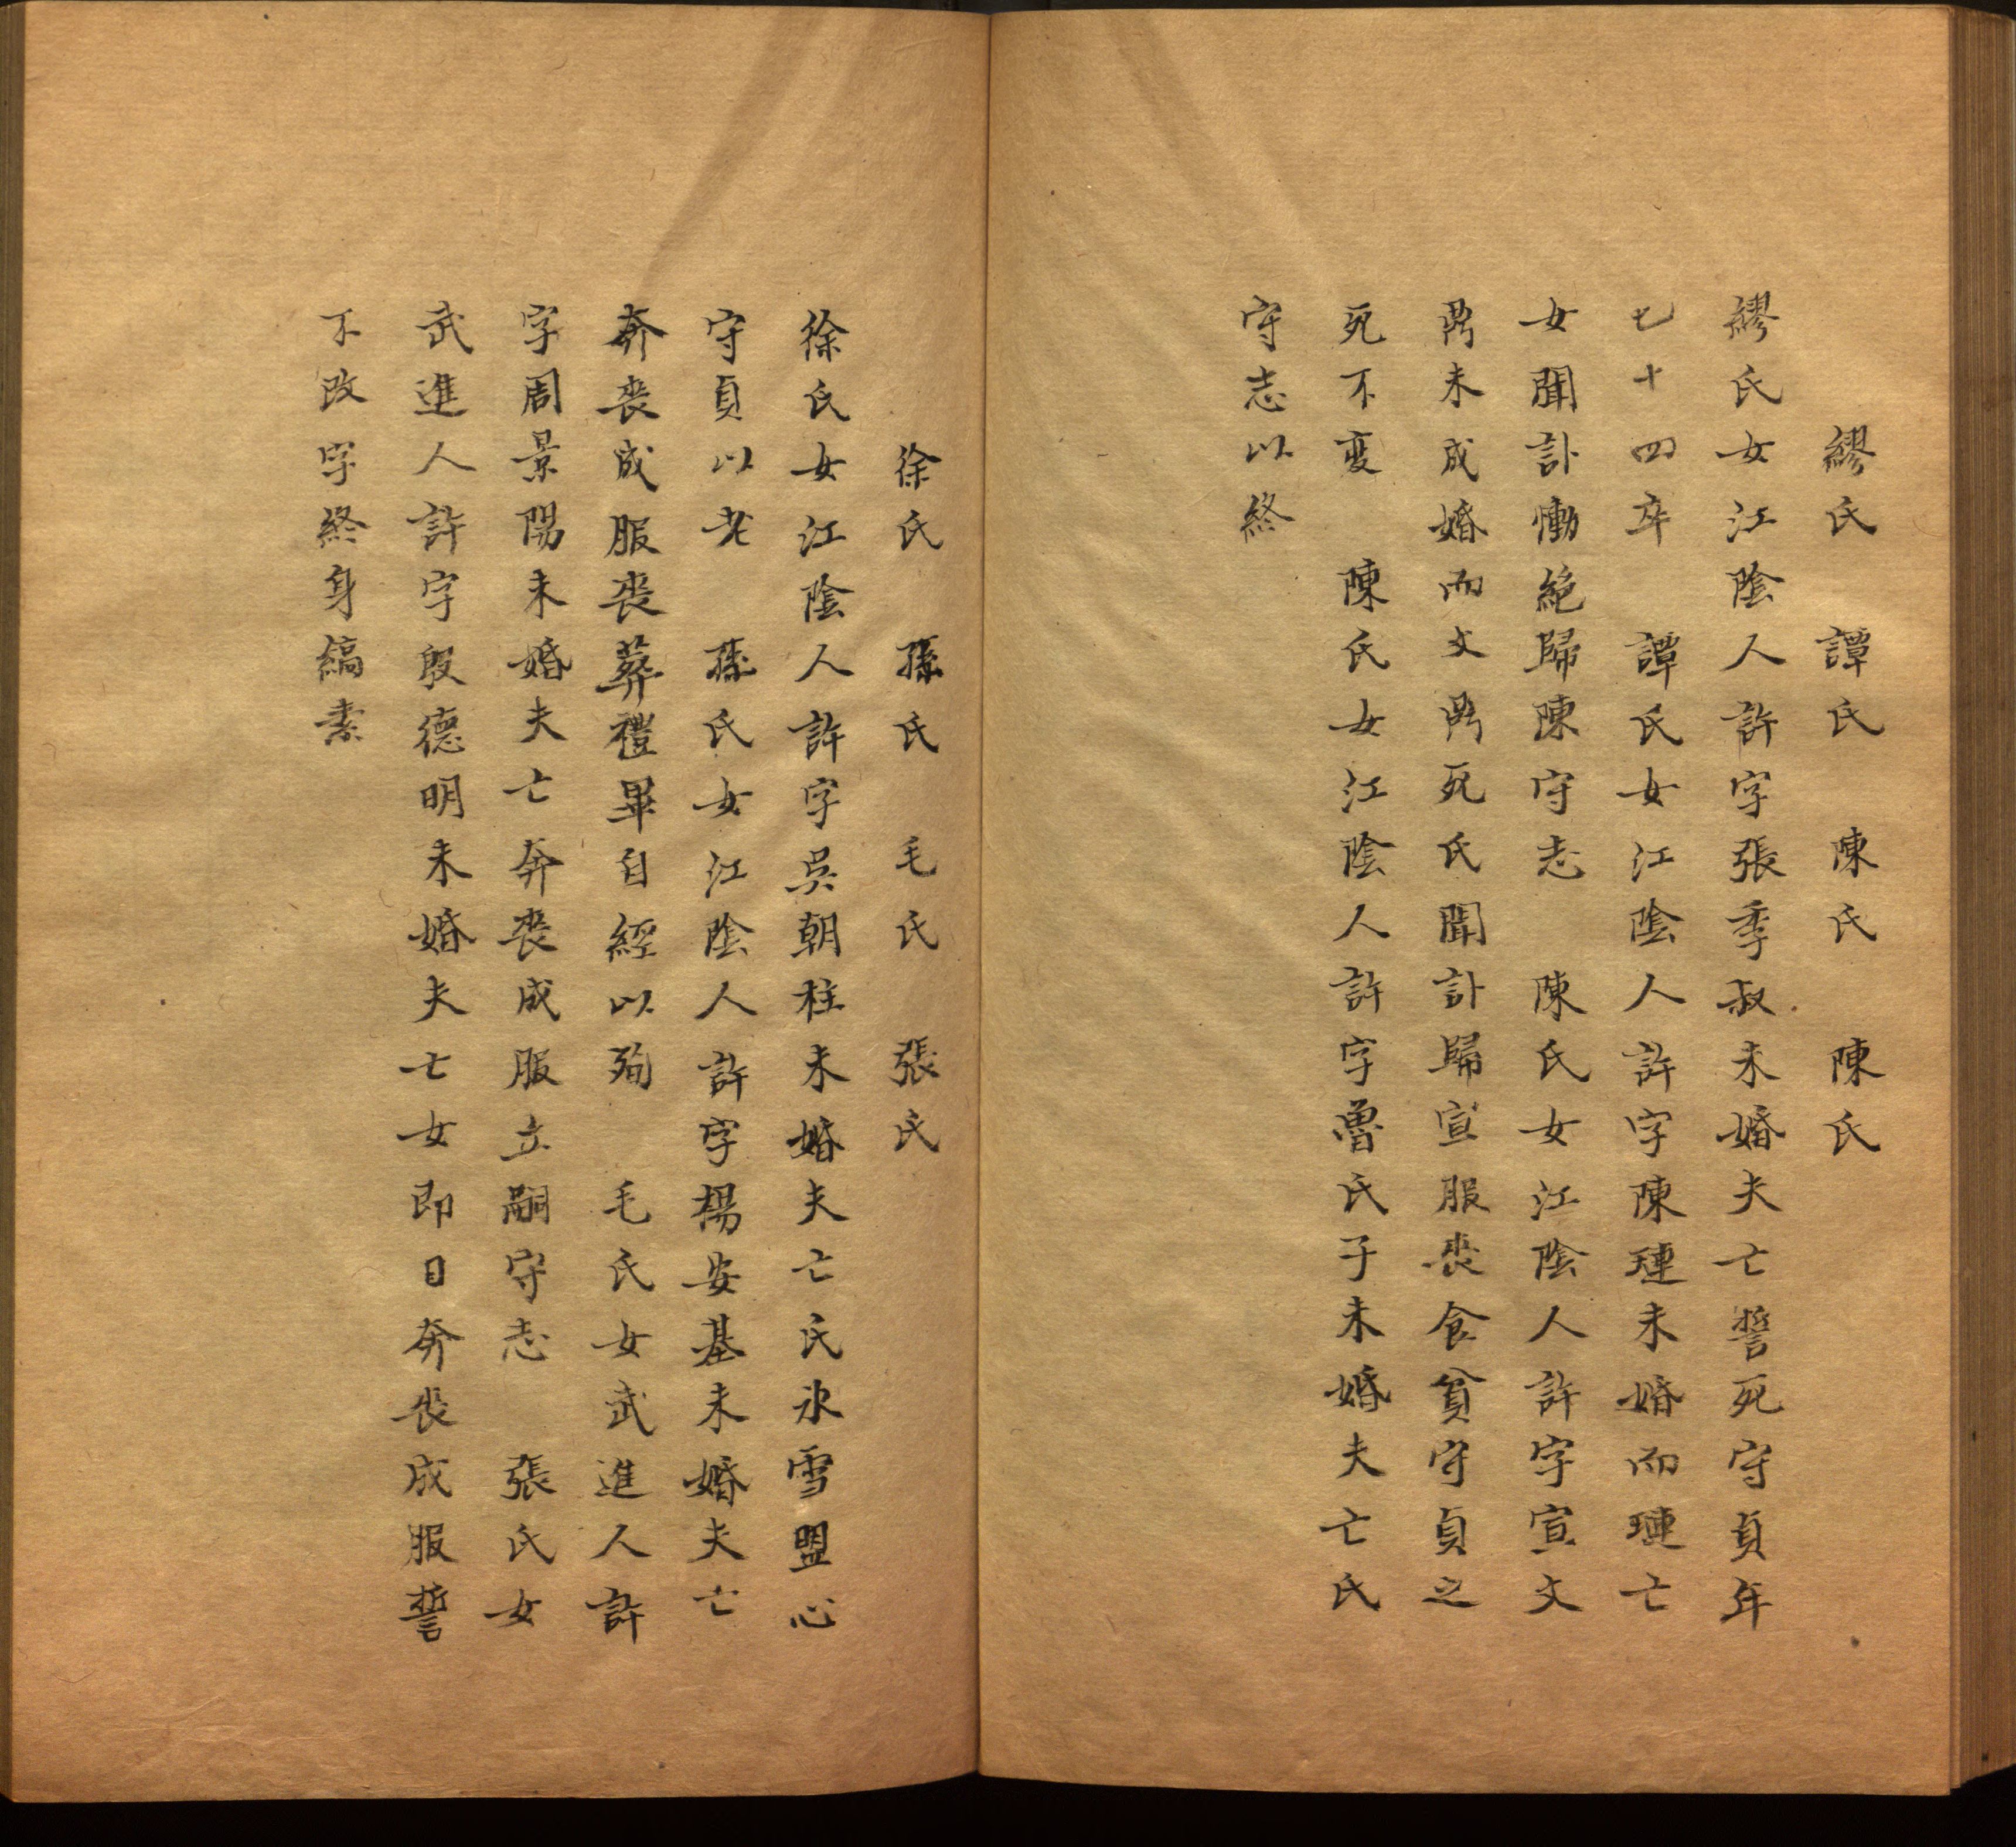 繆氏　譚氏　陳氏　陳氏
繆氏女江陰人許字張季叔未婚夫亡誓死守貞年
七十四卒　譚氏女江陰人許字陳璉未婚而璉亡
女聞訃慟絶歸陳守志　陳氏女江陰人許字宣文
昺未成婚而文昺死氏聞訃歸宣服喪食貧守貞之
死不变　陳氏女江陰人許字魯氏子未婚夫亡氏
守志以終
徐氏　孫氏　毛氏　張氏
徐氏女江陰人許字吳朝柱未婚夫亡氏氷雪盟心
守貞以老　孫氏女江陰人許字楊安基未婚夫亡
奔喪成服喪葬禮畢自經以殉　毛氏女武進人許
字周景陽未婚夫亡奔喪成服立嗣守志　張氏女
武進人許字殷德明未婚夫亡女即日奔喪成服誓
不改字終身縞素